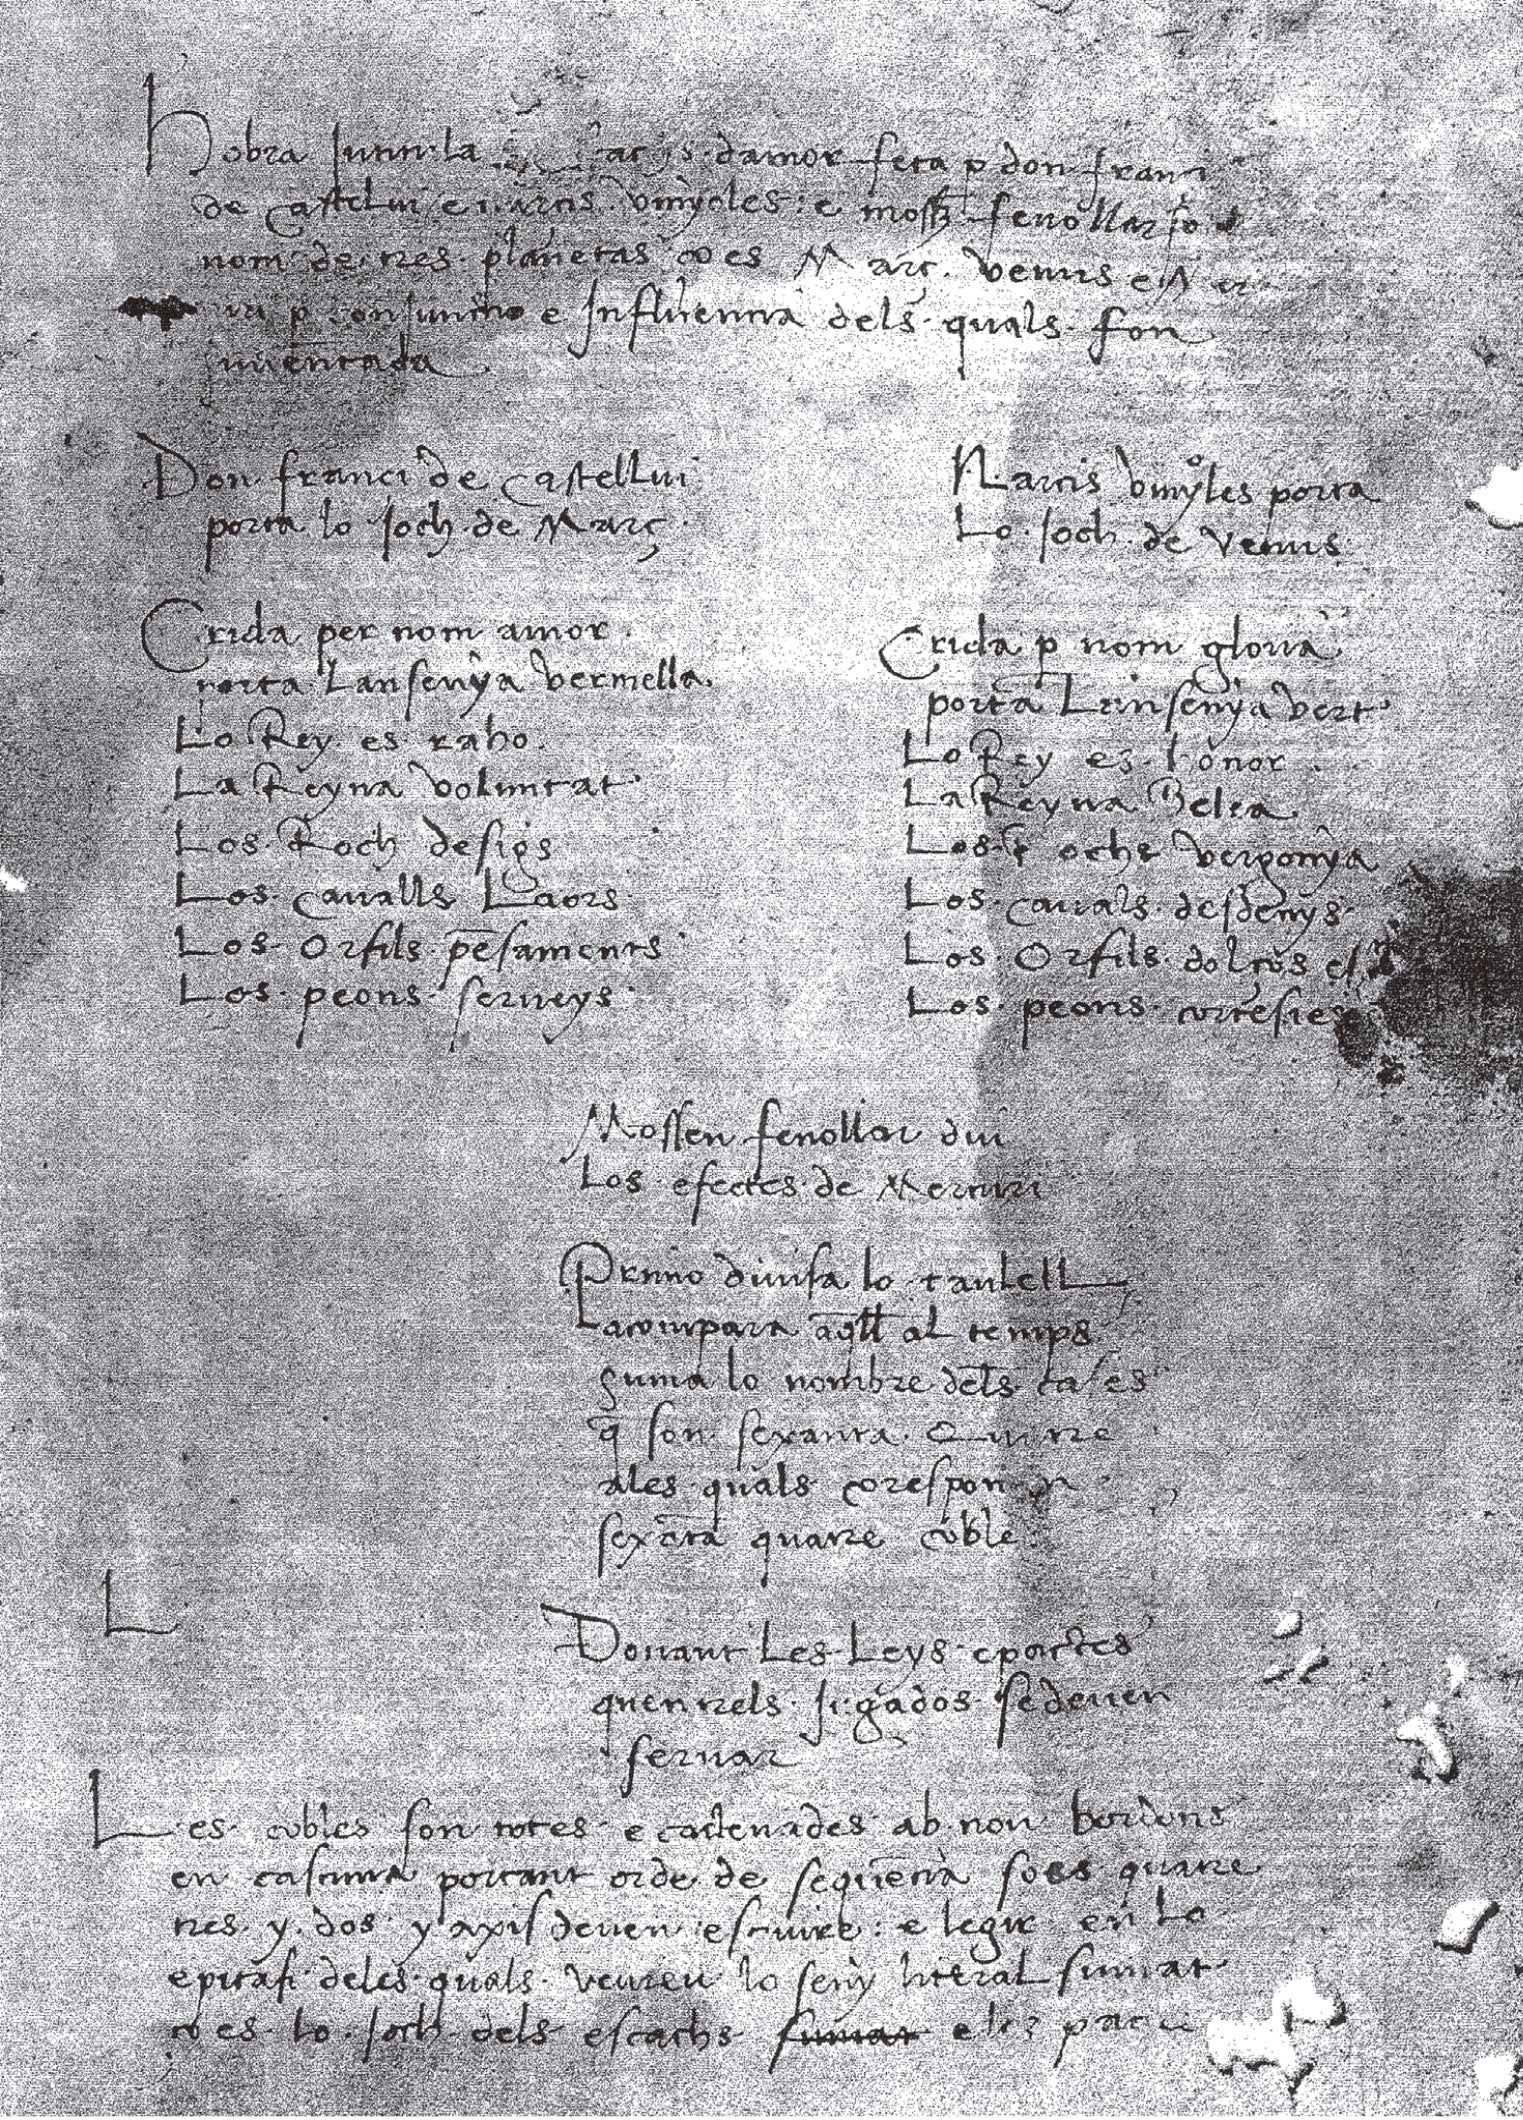 hobra Intitulada scachs damor feta p don franci
de castelui e narcis vinyoles e mossen fenollar so
nom de tres planetas co es Març Venus e Mer
curi p conjunctio e Influencia dels quals fon
inventada
Don franci de Castellui
porta lo Joch de Març
Crida per nom amor
porta Lansenya vermella
Lo Rey es raho
La Reyna voluntat
Los Roch desigs
Los cavalls Laors
Los Orfils pēsaments
Los peons serveys
Narcis vinyoles porta
Lo Joch de Venus
Crida p nom gloria
porta Lansenya vert
Lo Rey es honor
La Reyna Belea
Los Rochs vergonya
Los cavals desdenys
Los Orfils dolços
Los peons cortesies
Mossen fenollar diu
Los efectes de Mercuri
Primo divisa lo taulell
acompara aq̄ll al temps
suma lo nombre dels cases
q̄ son sexanta Quatre
ales quals corespon
sexāta quatre coble
L
Donant Les Leys e pactes
quentrels Jugados se deven
servar
Les cobles son totes e cadenades ab nou bordons
en cascuna portant orde de sequēcia soes quatre
tres y dos y axis deven escriure e legir en lo
epitafi deles quals veureu lo seny literal
co es lo Joch dels escachs e los